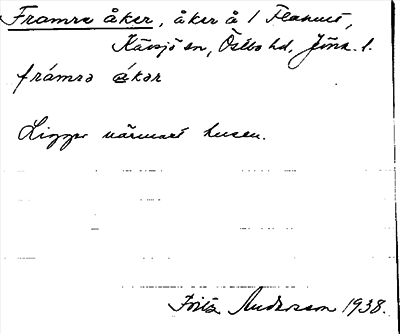 Framre åker, åker å 1
Kävsjö sn, Östbo hd, Jönk. l.
frámrə ákər
Ligger närmast husen.
Fritz Andersson 1938.